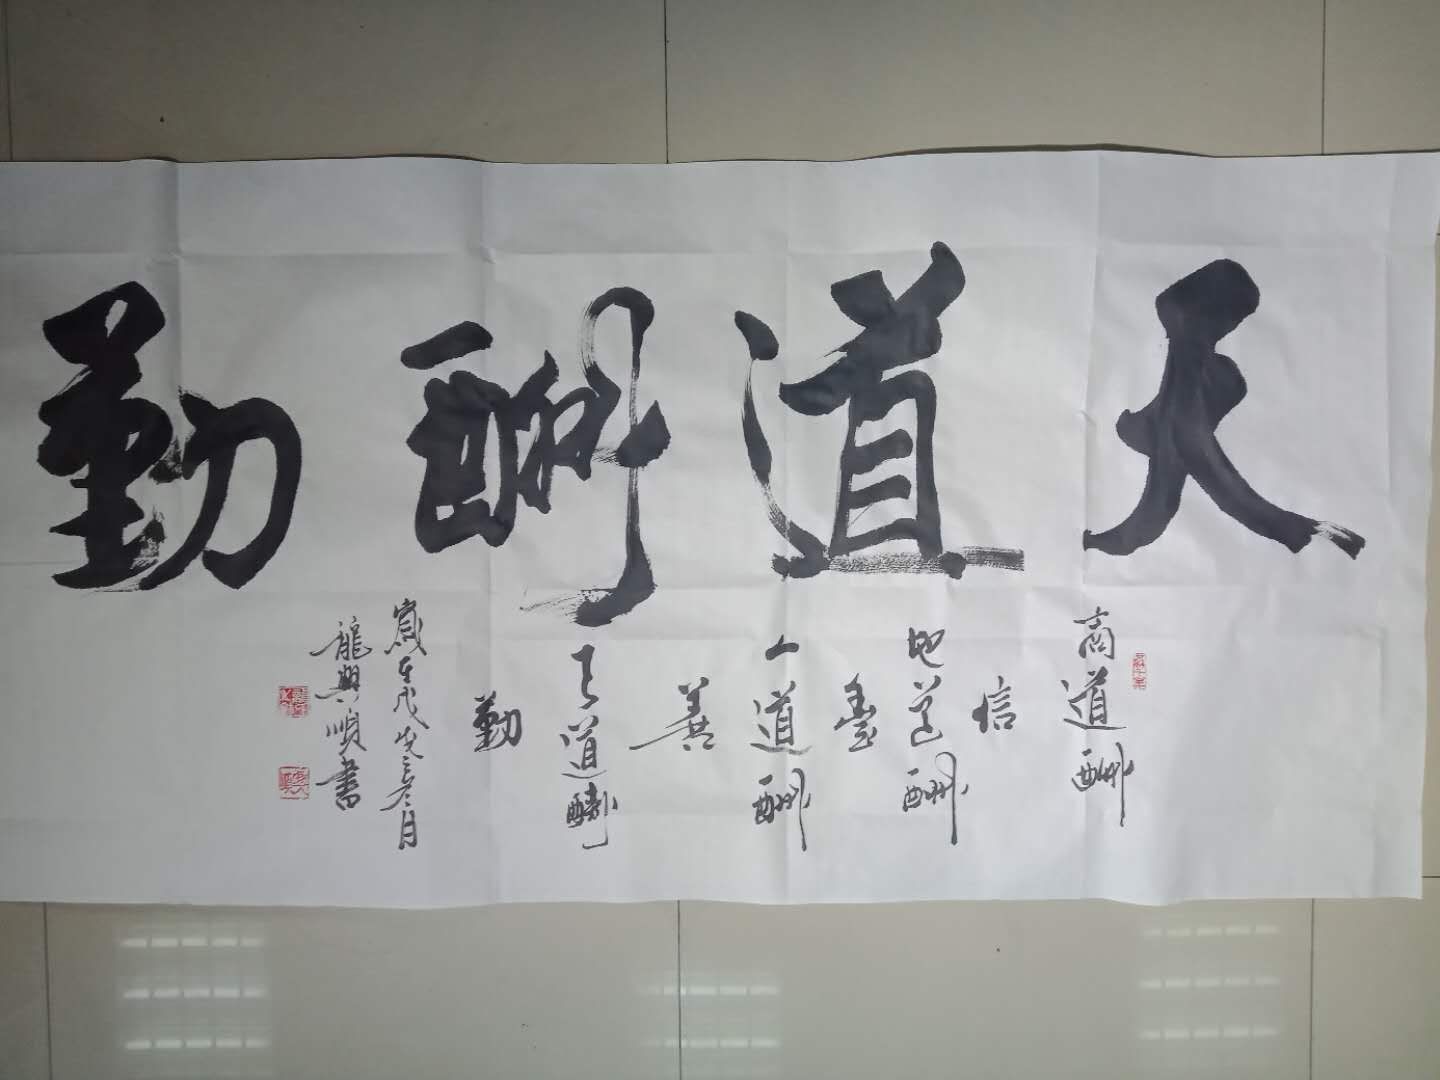 天道酬勤
商道酬
信
地道酬
人道酬
善
天道酬
勤
歲在戊戌冬月
龍興順書